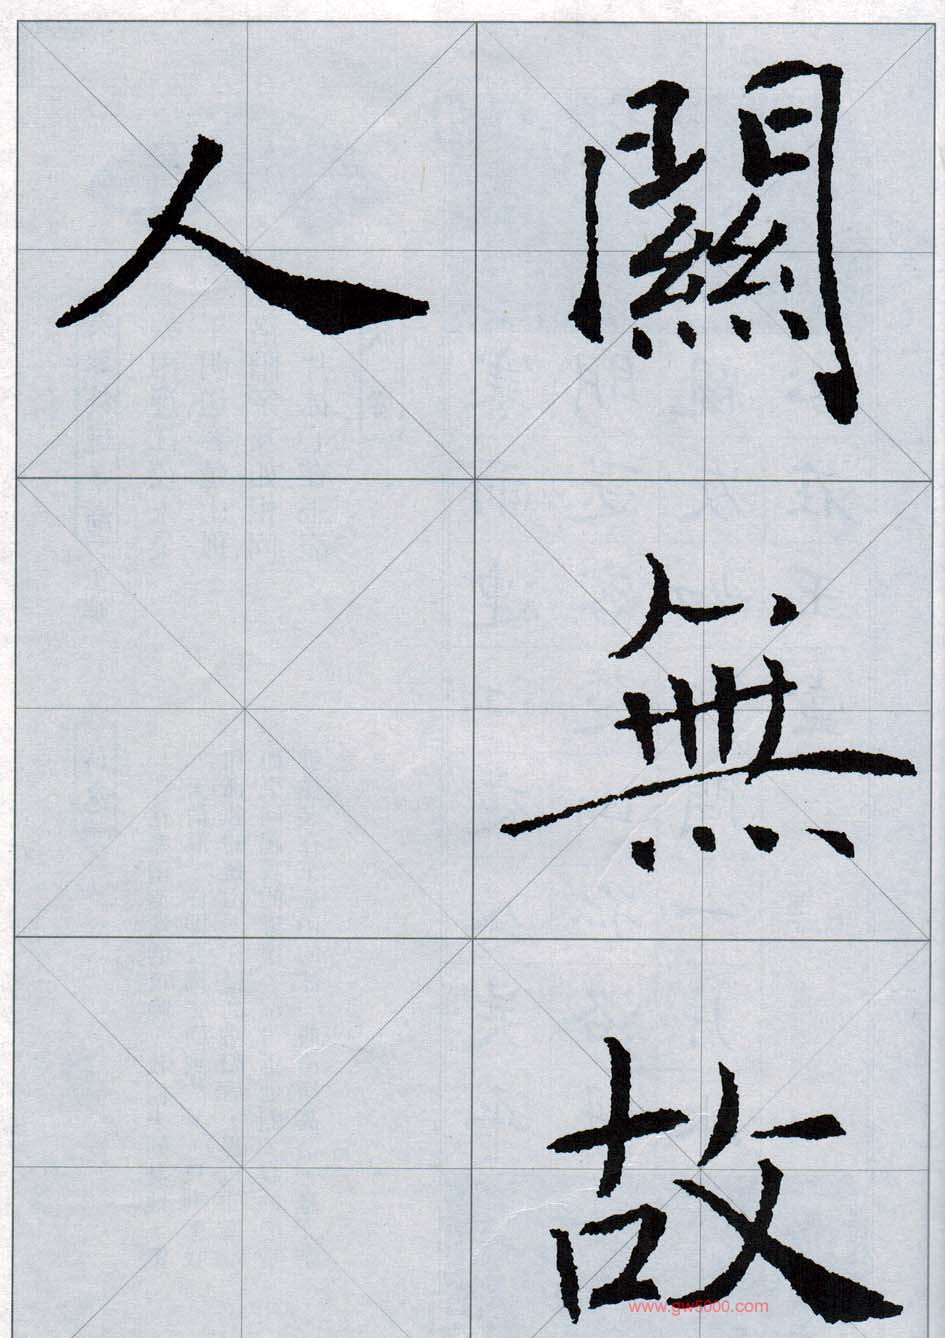 關無故
人
www.gw5000.com